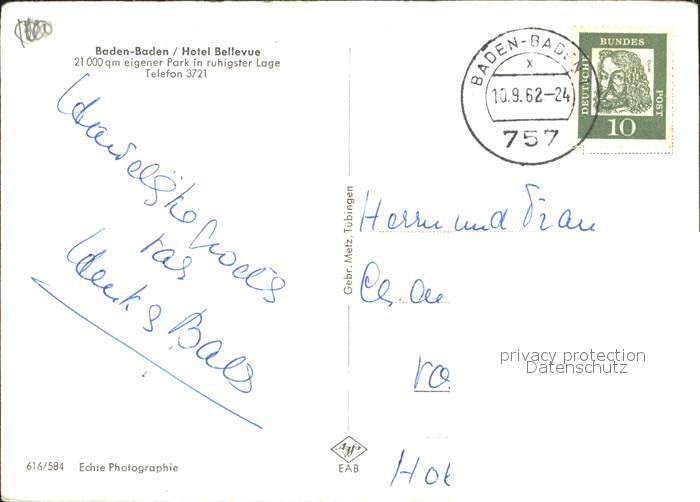 Baden-Baden / Hotel Bellevue
21 000 qm eigener Park in ruhigster Lage
Telefon 3721
BADEN-BADEN
x
10.9.62-24
757
DEUTSCHE
BUNDES
POST
10
Hartelijke groeten
van
Henk & 
Gebr. Metz, Tübingen
Herrn und Frau
privacy protection
Datenschutz
616/584 Echte Photographie
Agfa
EAB